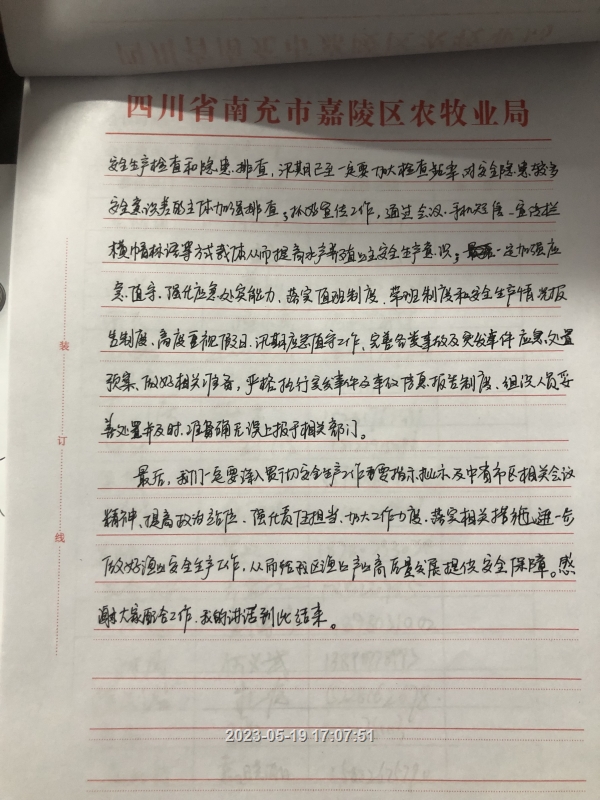 四川省南充市嘉陵区农牧业局
安全生产检查和隐患排查,汛期已至一定要加大检查频率,对安全隐患较多
安全意识差的主体加强排查;抓好宣传工作,通过会议、手机短信、宣传栏
横幅标语等方式载体从而提高水产养殖业主安全生产意识;一定加强应
急值守、强化应急处突能力、落实值班制度、带班制度和安全生产情况报
告制度、高度重视假日、汛期应急值守工作、完善各类事故及突发事件应急处置
预案、做好相关准备,严格执行突发事件及事故信息报告制度、组织人员妥
善处置并及时、准备确无误上报于相关部门。
最后,我们一定要深入贯彻安全生产工作重要指示批示及中省市区相关会议
精神、提高政治站位、强化责任担当、加大工作力度、落实相关措施,进一步
做好渔业安全生产工作,从而给我区渔业产业高质量发展提供安全保障。感
谢大家配合工作,我的讲话到此结束。
装
订
线
2023-05-19 17:07:51